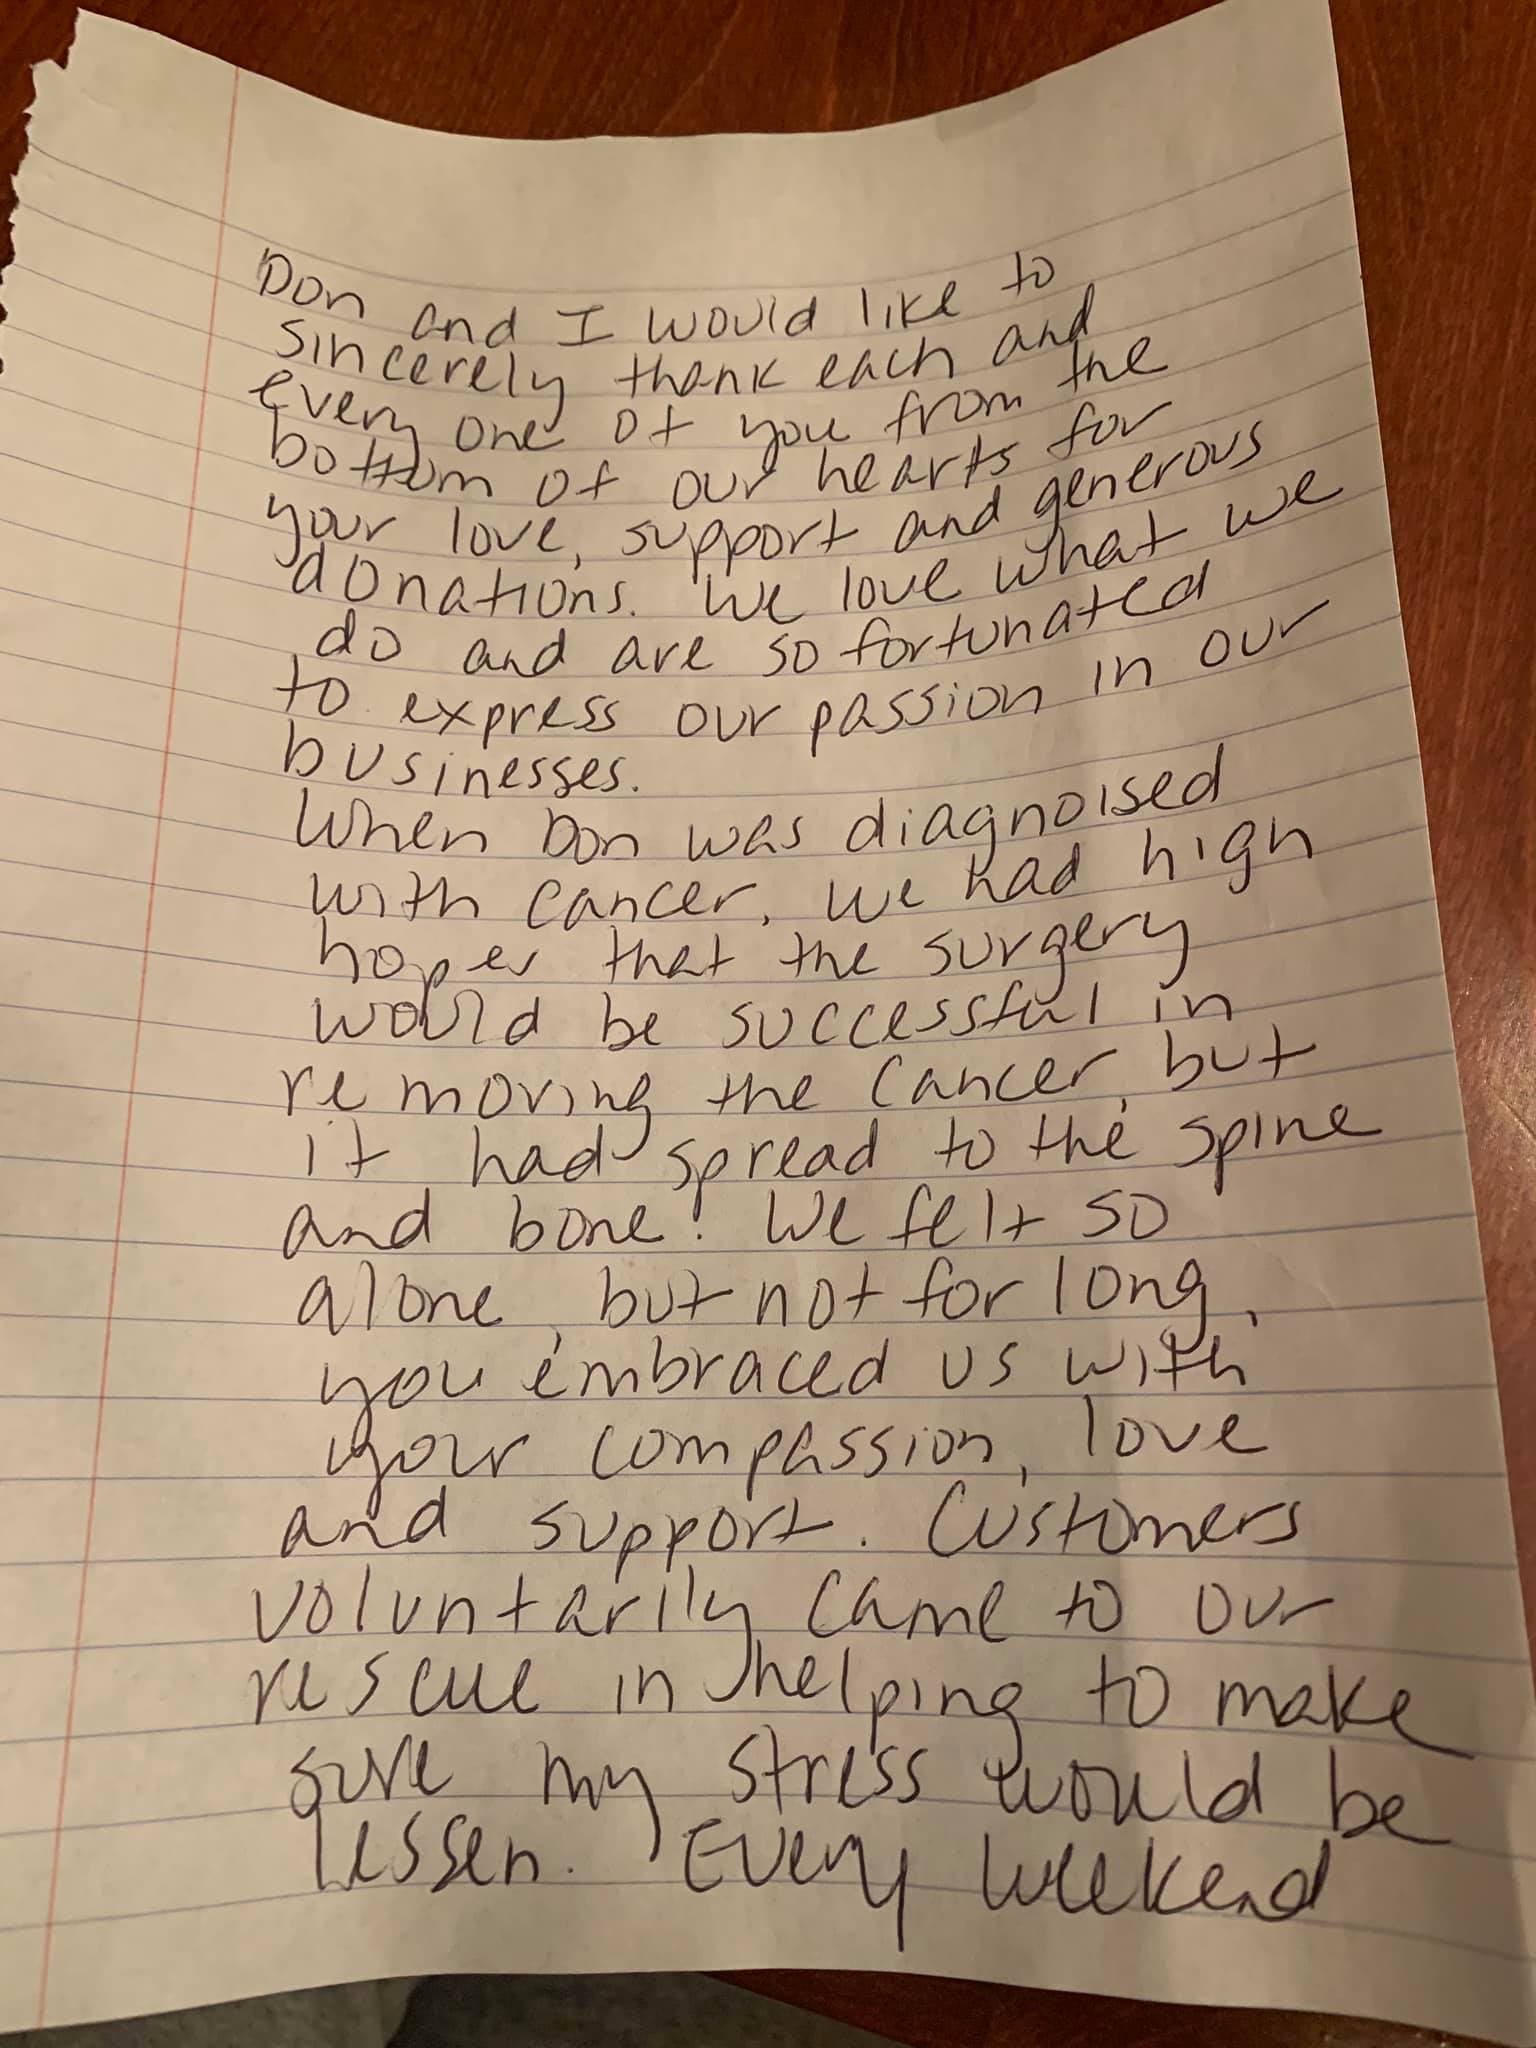 Don and I would like to
sincerely thank each and
every one of you from the
bottom of our hearts for
your love, support and generous
donations. We love what we
do and are so fortunated
to express our passion in our
businesses.
When Don was diagnoised
with cancer, we had high
hopes that the surgery
would be successful in
removing the cancer, but
it had spread to the spine
and bone! We felt so
alone, but not for long,
you embraced us with
your compassion, love
and support. Customers
voluntarily came to our
rescue in helping to make
sure my stress would be
lessen. Every weekend